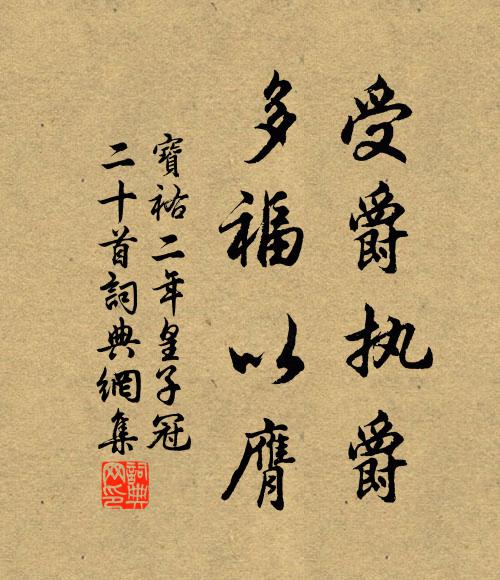 受爵执爵
多福以膺
寶祐二年皇子冠
二十首詞典網集
詞典
网印